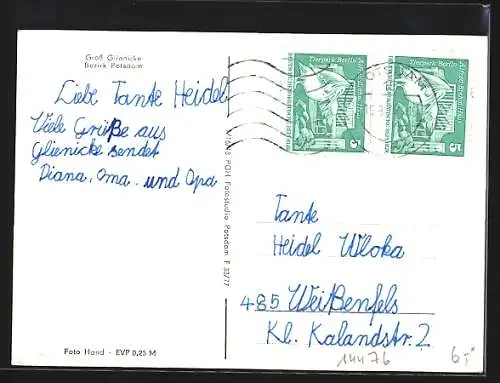 Groß Glienicke
Bezirk Potsdam
Liebe Tante Heidel
Viele Grüße aus
Glienicke sendet
Diana, Oma. und Opa
Foto Hand - EVP 0,25 M
PGH Fotostudio Potsdam F 33/77
Tierpark Berlin
5
Tierpark Berlin
5
Tante
Heidel Wloka
485 Weißenfels
Kl. Kalandstr. 2
14476
6,-